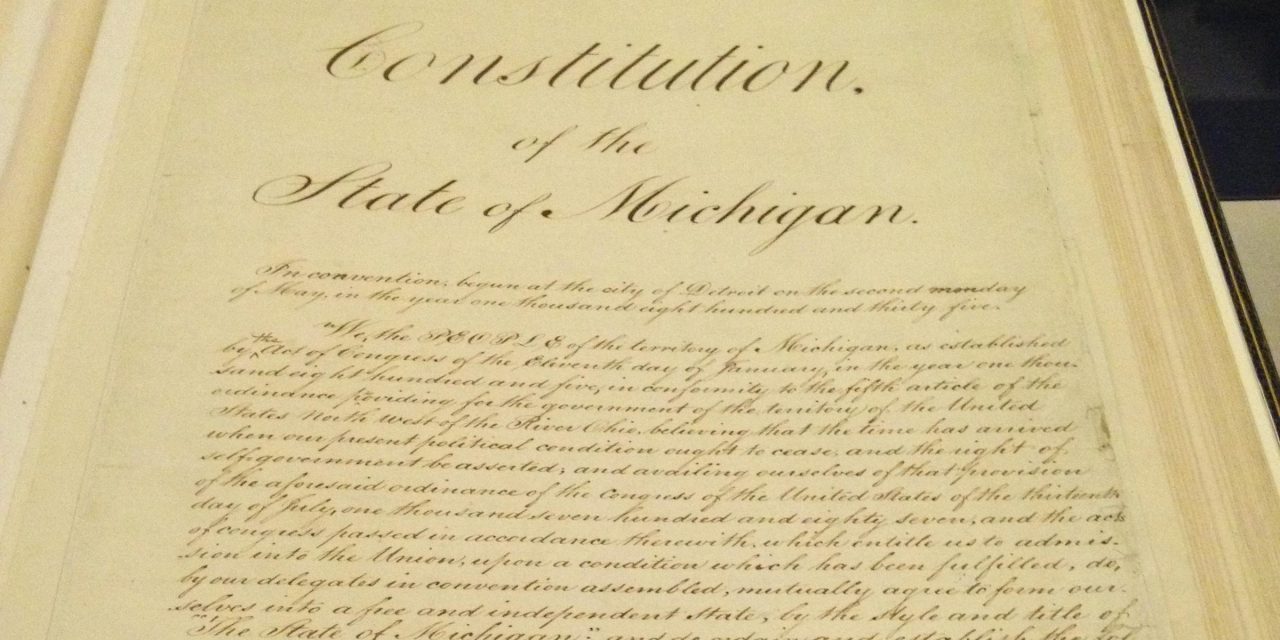 Constitution.
of the
State of Michigan.
In convention, begun at the city of Detroit on the second monday
of May, in the year one thousand eight hundred and thirty five.
"We, the PEOPLE of the territory of Michigan, as established
by the Act of Congress of the Eleventh day of January, in the year one thou-
sand eight hundred and five, in conformity to the fifth article of the
ordinance providing for the government of the territory of the United
States North West of the River Ohio, believing that the time has arrived
when our present political condition ought to cease, and the right of
self-government be asserted; and availing ourselves of that provision
of the aforesaid ordinance of the congress of the United States of the thirteenth
day of July, one thousand seven hundred and eighty seven, and the acts
of congress passed in accordance therewith, which entitle us to admis-
sion into the Union, upon a condition which has been fulfilled, do,
by our delegates in convention assembled, mutually agree to form our-
selves into a free and independent state, by the style and title of
"The State of Michigan"; and do ordain and establish the